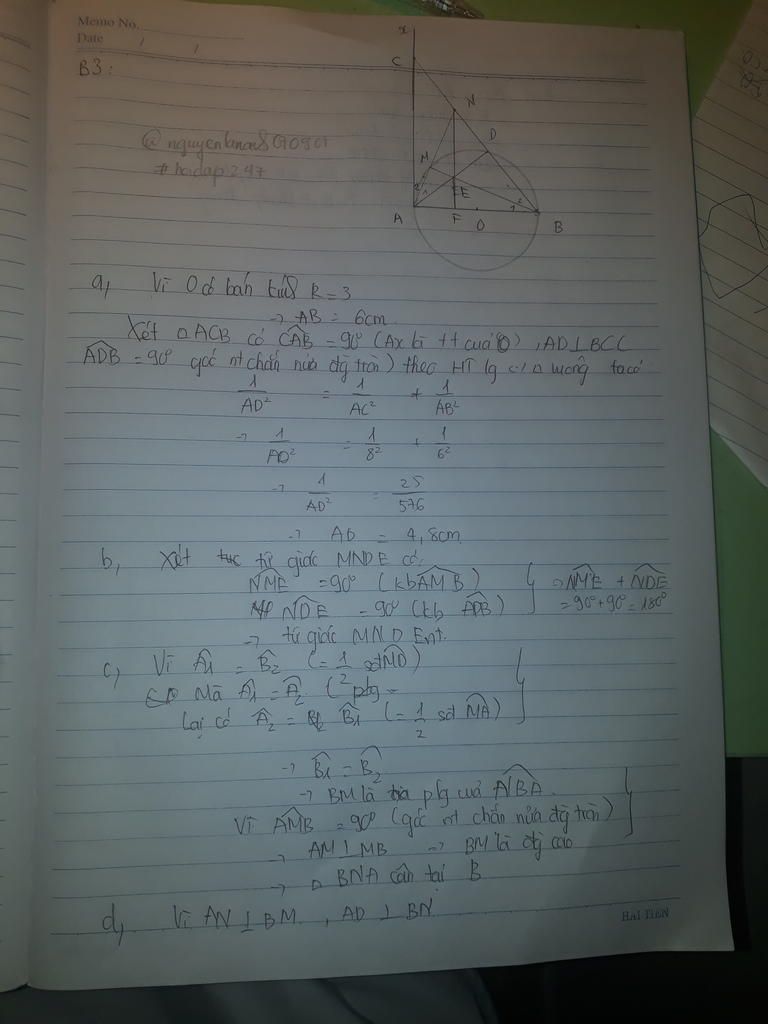 Memo No.
Date / /
B3:
x
C
N
D
M
E
2
1
1
2
A
F
O
B
#hoidap247
a, Vì O có bán kính R = 3
→ AB = 6cm
Xét △ ACB có CAB = 90° (Ax là tt của O), AD⊥BC(
ADB = 90° góc nt chắn nửa đg tròn) theo HT lg △ vuông ta có
1/AD² = 1/AC² + 1/AB²
→ 1/AD² = 1/8² + 1/6²
→ 1/AD² = 25/576
→ AD = 4,8cm
b, Xét tứ giác MNDE có:
NME = 90° (kb AMB)
NDE = 90° (kb ADB)
→ NME + NDE
= 90° + 90° = 180°
→ tứ giác MNDE nt.
c, Vì A1 = B2 (= 1/2 sđ MD)
Mà A1 = A2 (
Lại có A2 = B1 (= 1/2 sđ MA)
→ B1 = B2
→ BM là pfg của NBA
Vì AMB = 90° (góc nt chắn nửa đg tròn)
→ AM ⊥ MB → BM là đg cao
→ △ BNA cân tại B
d, Vì AN ⊥ BM , AD ⊥ BN
HẢI TIẾN